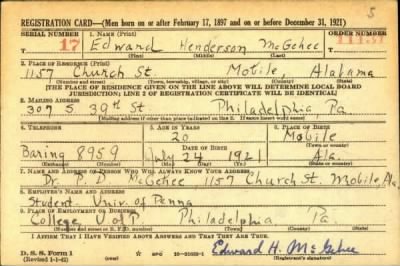 5
REGISTRATION CARD—(Men born on or after February 17, 1897 and on or before December 31, 1921)
SERIAL NUMBER 1. NAME (Print) ORDER NUMBER
17 Edward Henderson McGehee
(First) (Middle) (Last)
2. PLACE OF RESIDENCE (Print)
1157 Church St. Mobile, Alabama
(Number and street) (Town, township, village, or city) (County) (State)
[THE PLACE OF RESIDENCE GIVEN ON THE LINE ABOVE WILL DETERMINE LOCAL BOARD
JURISDICTION; LINE 2 OF REGISTRATION CERTIFICATE WILL BE IDENTICAL]
3. MAILING ADDRESS
307 S 39th St Philadelphia, Pa.
[Mailing address if other than place indicated on line 2. If same insert word same]
4. TELEPHONE 5. AGE IN YEARS 6. PLACE OF BIRTH
20 Mobile
DATE OF BIRTH (Town or county)
Baring 8959 July 24 1921 Ala.
(Exchange) (Number) (Mo.) (Day) (Yr.) (State or country)
7. NAME AND ADDRESS OF PERSON WHO WILL ALWAYS KNOW YOUR ADDRESS
Dr. P D McGehee 1157 Church St. Mobile, Ala.
8. EMPLOYER'S NAME AND ADDRESS
Student - Univ. of Penna
9. PLACE OF EMPLOYMENT OR BUSINESS
College U of P. Philadelphia Pa
(Number and street or R. F. D. number) (Town) (County) (State)
I AFFIRM THAT I HAVE VERIFIED ABOVE ANSWERS AND THAT THEY ARE TRUE.
D. S. S. Form 1
(Revised 1-1-42) GPO Edward H. McGehee